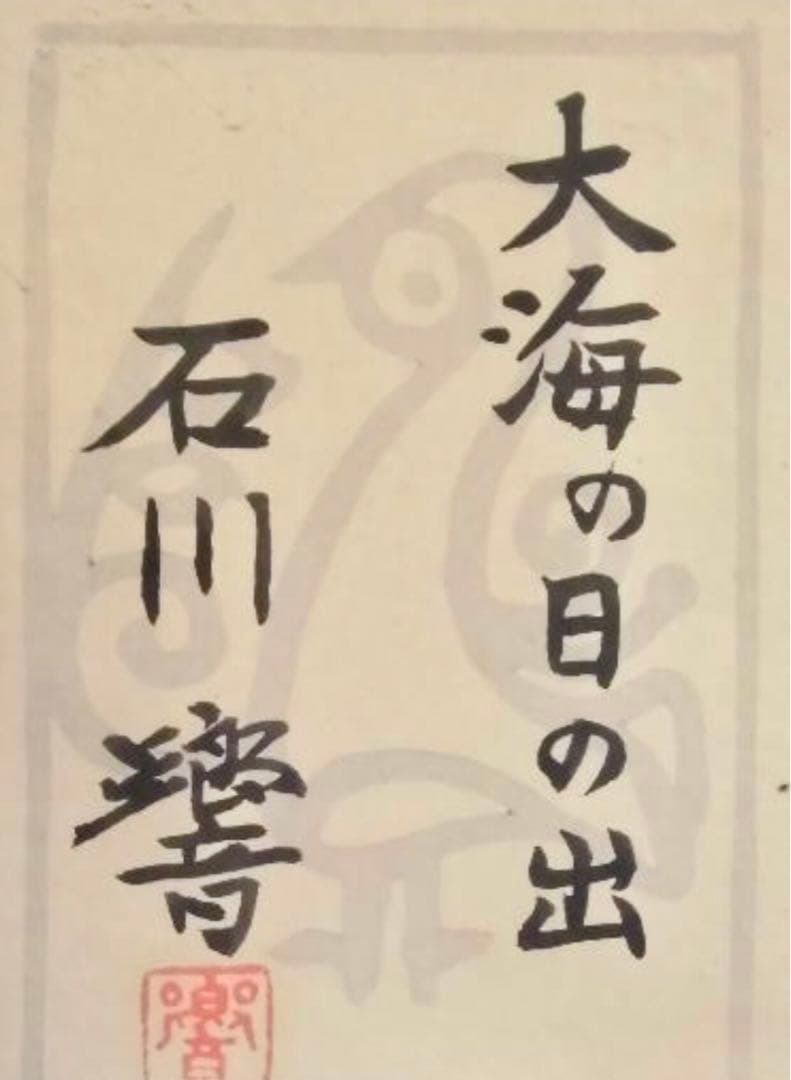 大海の日の出
石川響
響